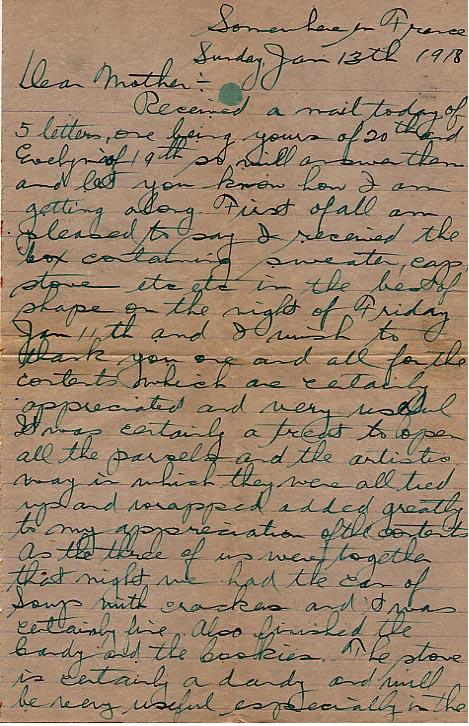 Somewhere in France
Sunday, Jan 13th 1918
Dear Mother:-
Received a mail today of
5 letters, one being yours of 20th and
Evelyn's of 19th so will answer them
and let you know how I am
getting along. First of all am
pleased to say I received the
box containing sweater, cap,
stove etc etc in the best of
shape on the night of Friday
Jan 11th and I wish to
thank you one and all for the
contents which are certainly
appreciated and very useful
It was certainly a treat to open
all the parcels and the artistic
way in which they were all tied
up and wrapped added greatly
to my appreciation of the contents
As the three of us were together
that night we had the can of
Soup with crackers and it was
certainly fine. Also finished the
Candy and the cookies. The stove
is certainly a dandy and will
be very useful especially in the